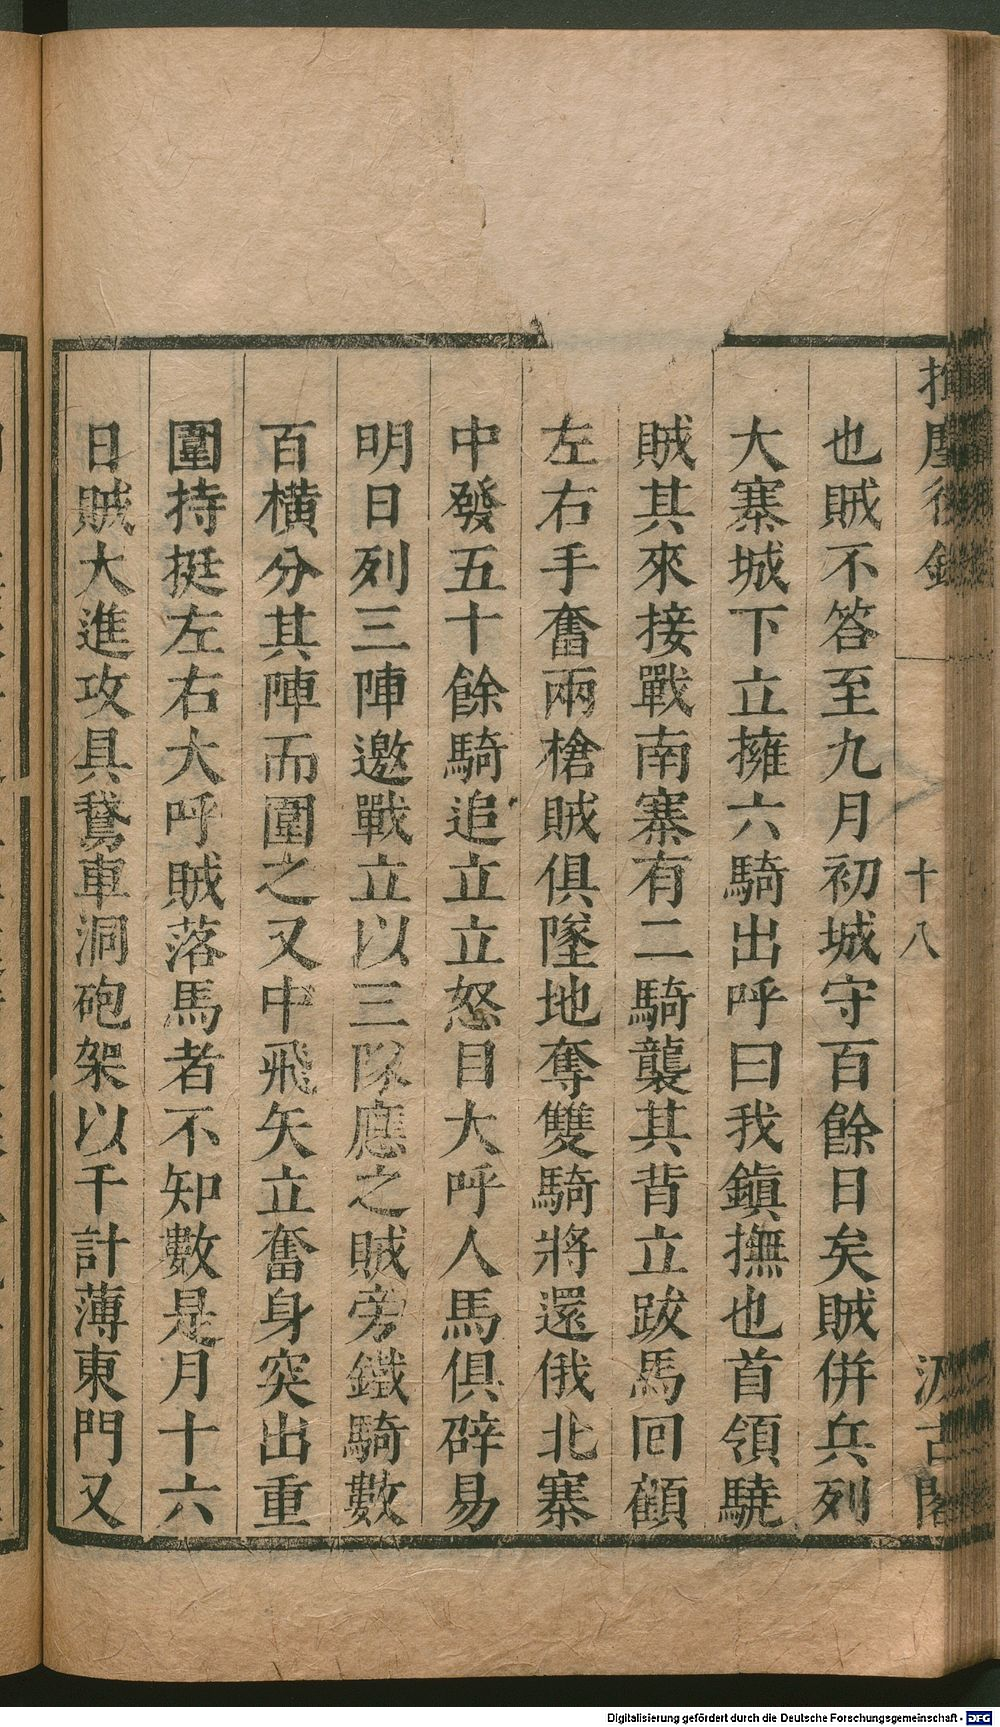 揮麈後錄
十八
汲古閣
也賊不答至九月初城守百餘日矣賊併兵列
大寨城下立擁六騎出呼曰我鎮撫也首領驍
賊其來接戰南寨有二騎襲其背立跋馬回顧
左右手奮兩槍賊俱墜地奪雙騎將還俄北寨
中發五十餘騎追立立怒目大呼人馬俱辟易
明日列三陣邀戰立以三隊應之賊旁鐵騎數
百橫分其陣而圍之又中飛矢立奮身突出重
圍持挺左右大呼賊落馬者不知數是月十六
日賊大進攻具鵞車洞砲架以千計薄東門又
Digitalisierung gefördert durch die Deutsche Forschungsgemeinschaft - DFG